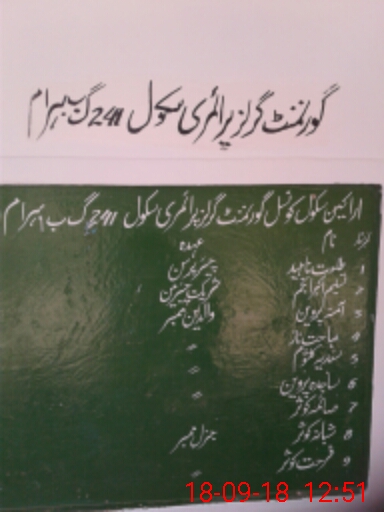 گورنمنٹ گرلز پرائمری سکول 241 گ ب بہرام
اراکین سکول کونسل گورنمنٹ گرلز پرائمری سکول 241 گ ب بہرام
نام عہدہ
1 ناہید چیئرپرسن
2
3 آمنہ پروین والدین ممبر
4 صباحت ناز 〃
5 سندیہ کلثوم 〃
6 ساجدہ پروین 〃
7 صائمہ کوثر
8 شبانہ کوثر جنرل ممبر
9 فرحت کوثر 〃
18-09-18 12:51